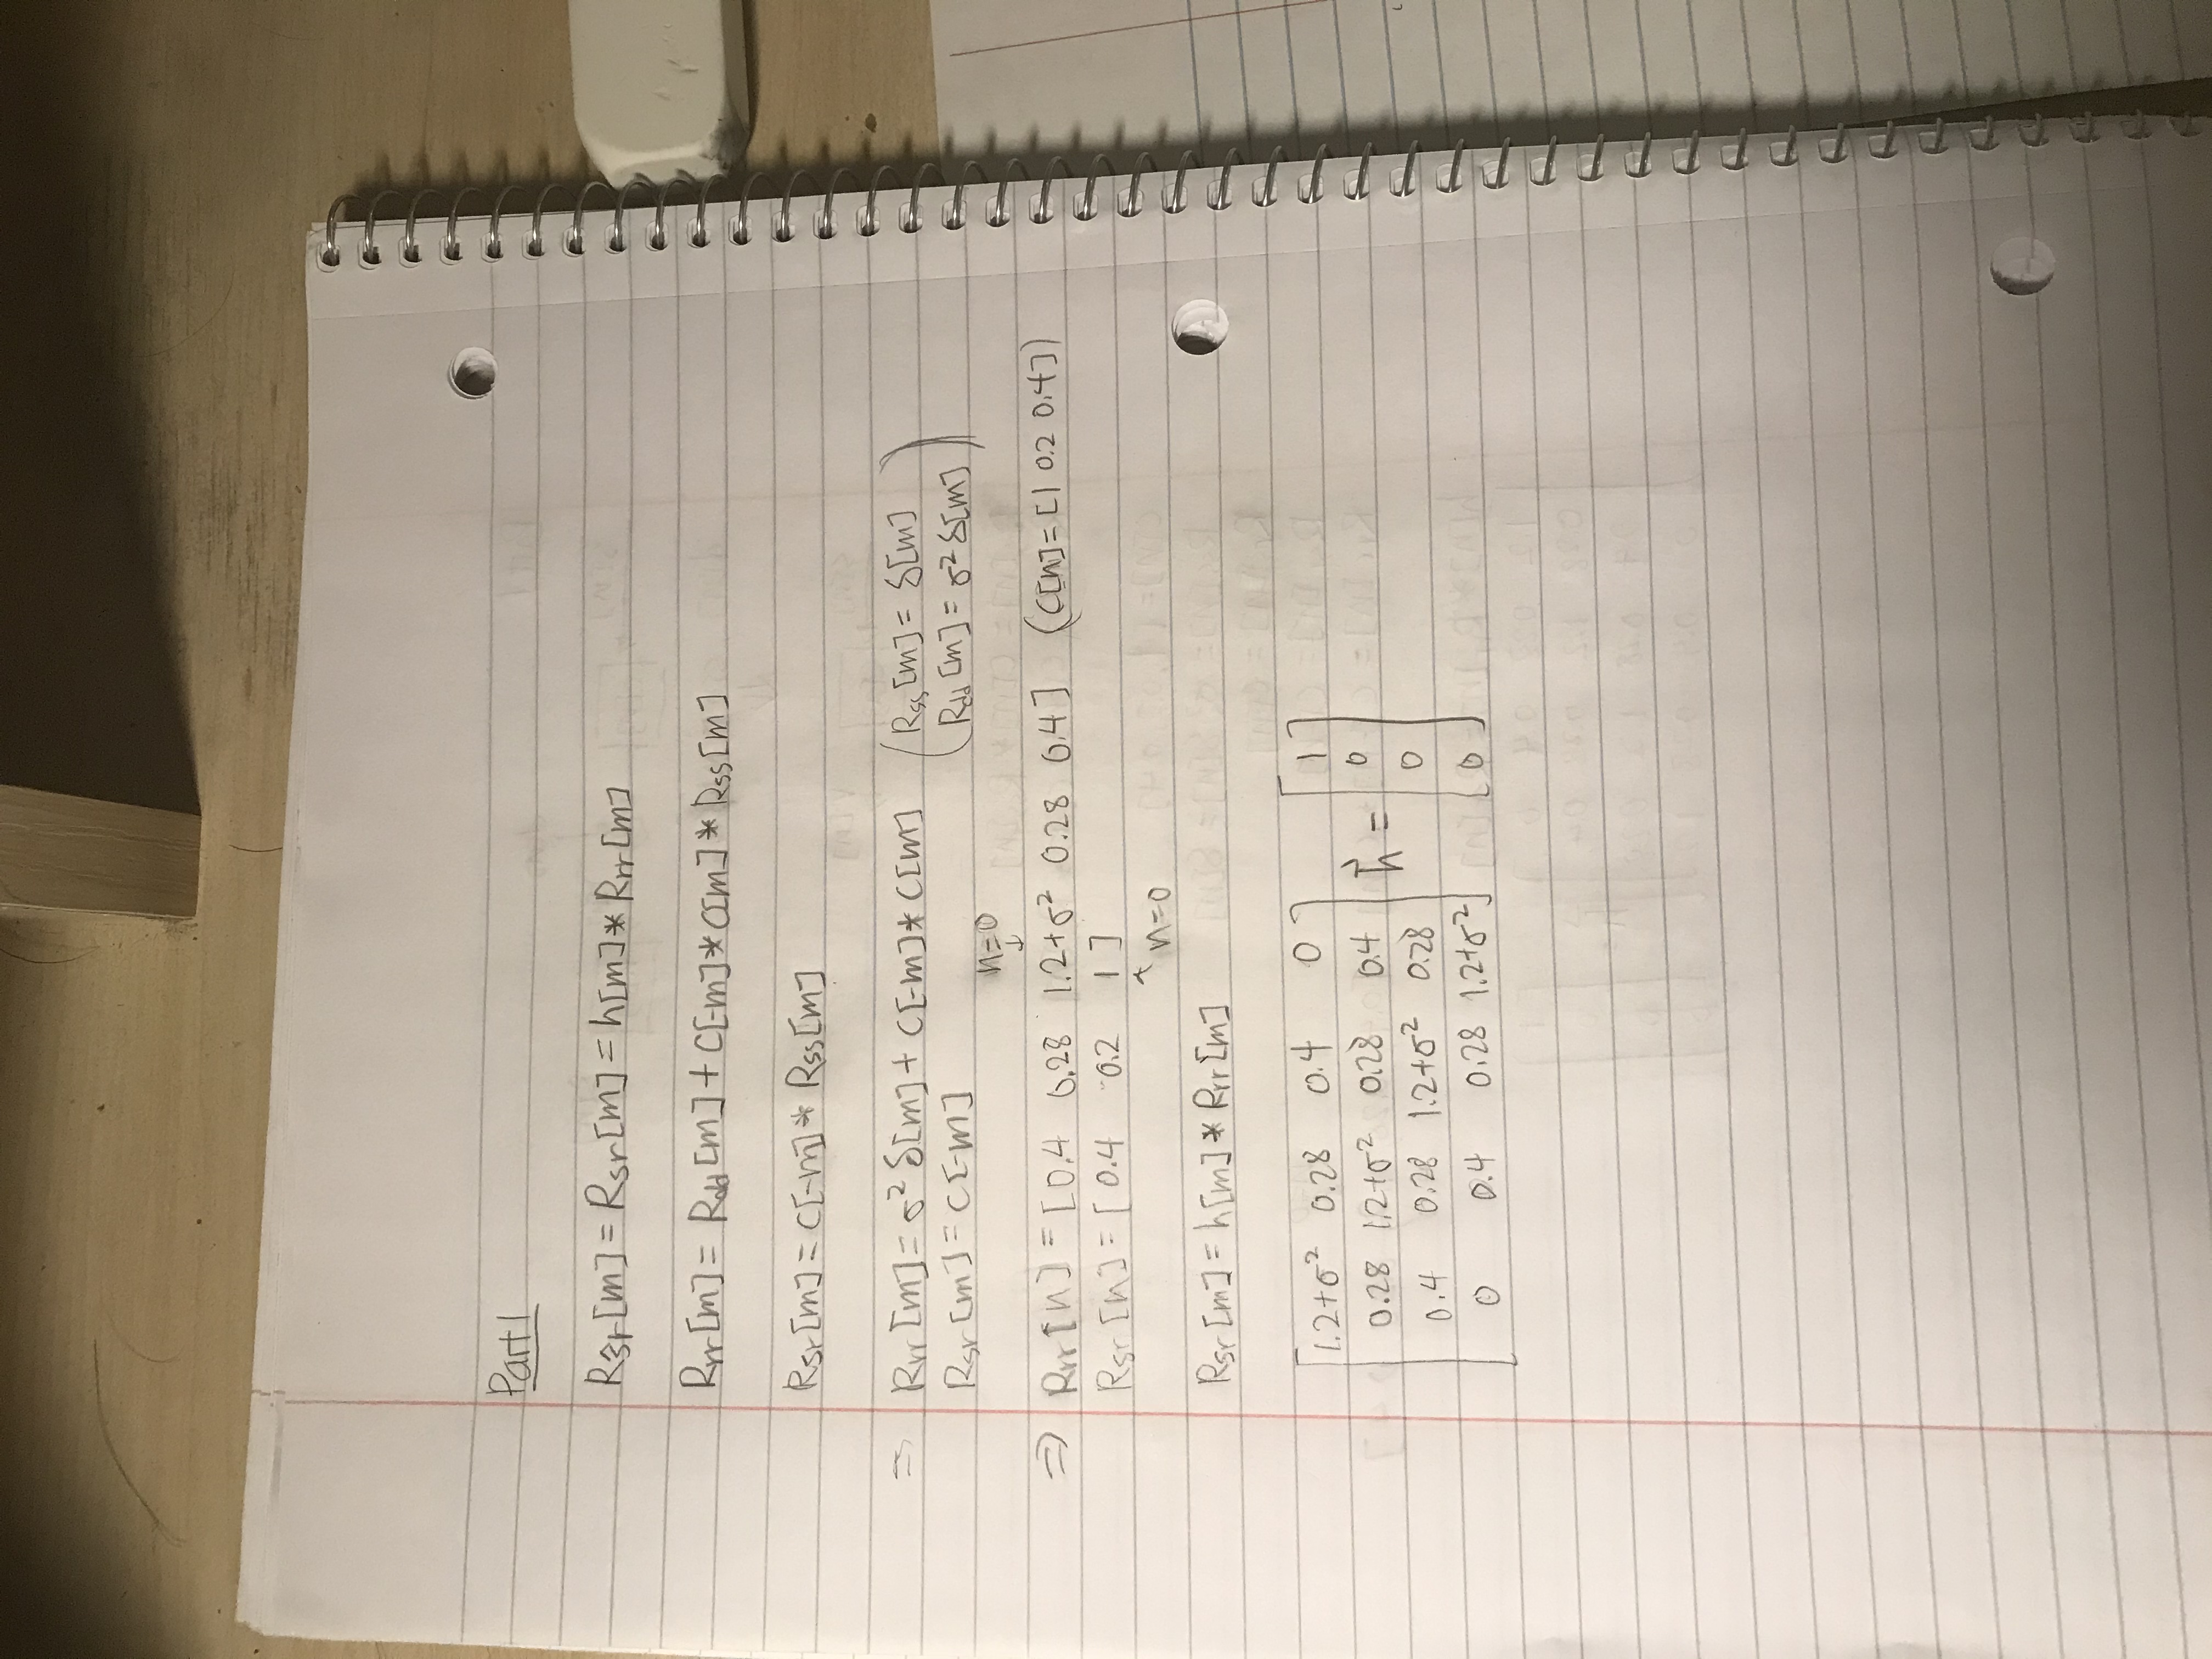 Part 1
Rŝr[m] = Rsr[m] = h[m] * Rrr[m]
Rrr[m] = Rdd[m] + C[-m] * C[m] * Rss[m]
Rsr[m] = C[-m] * Rss[m]
⇒ Rrr[m] = σ² δ[m] + C[-m] * C[m] (Rss[m] = δ[m]
Rsr[m] = C[-m] Rdd[m] = σ² δ[m])
n=0
↓
⇒ Rrr[n] = [0.4 0.28 1.2+σ² 0.28 0.4] (C[n] = [1 0.2 0.4])
Rsr[n] = [0.4 0.2 1]
↑ n=0
Rsr[m] = h[m] * Rrr[m]
[1.2+σ² 0.28 0.4 0] [1]
[0.28 1.2+σ² 0.28 0.4] h⃗ = [0]
[0.4 0.28 1.2+σ² 0.28] [0]
[0 0.4 0.28 1.2+σ²] [0]